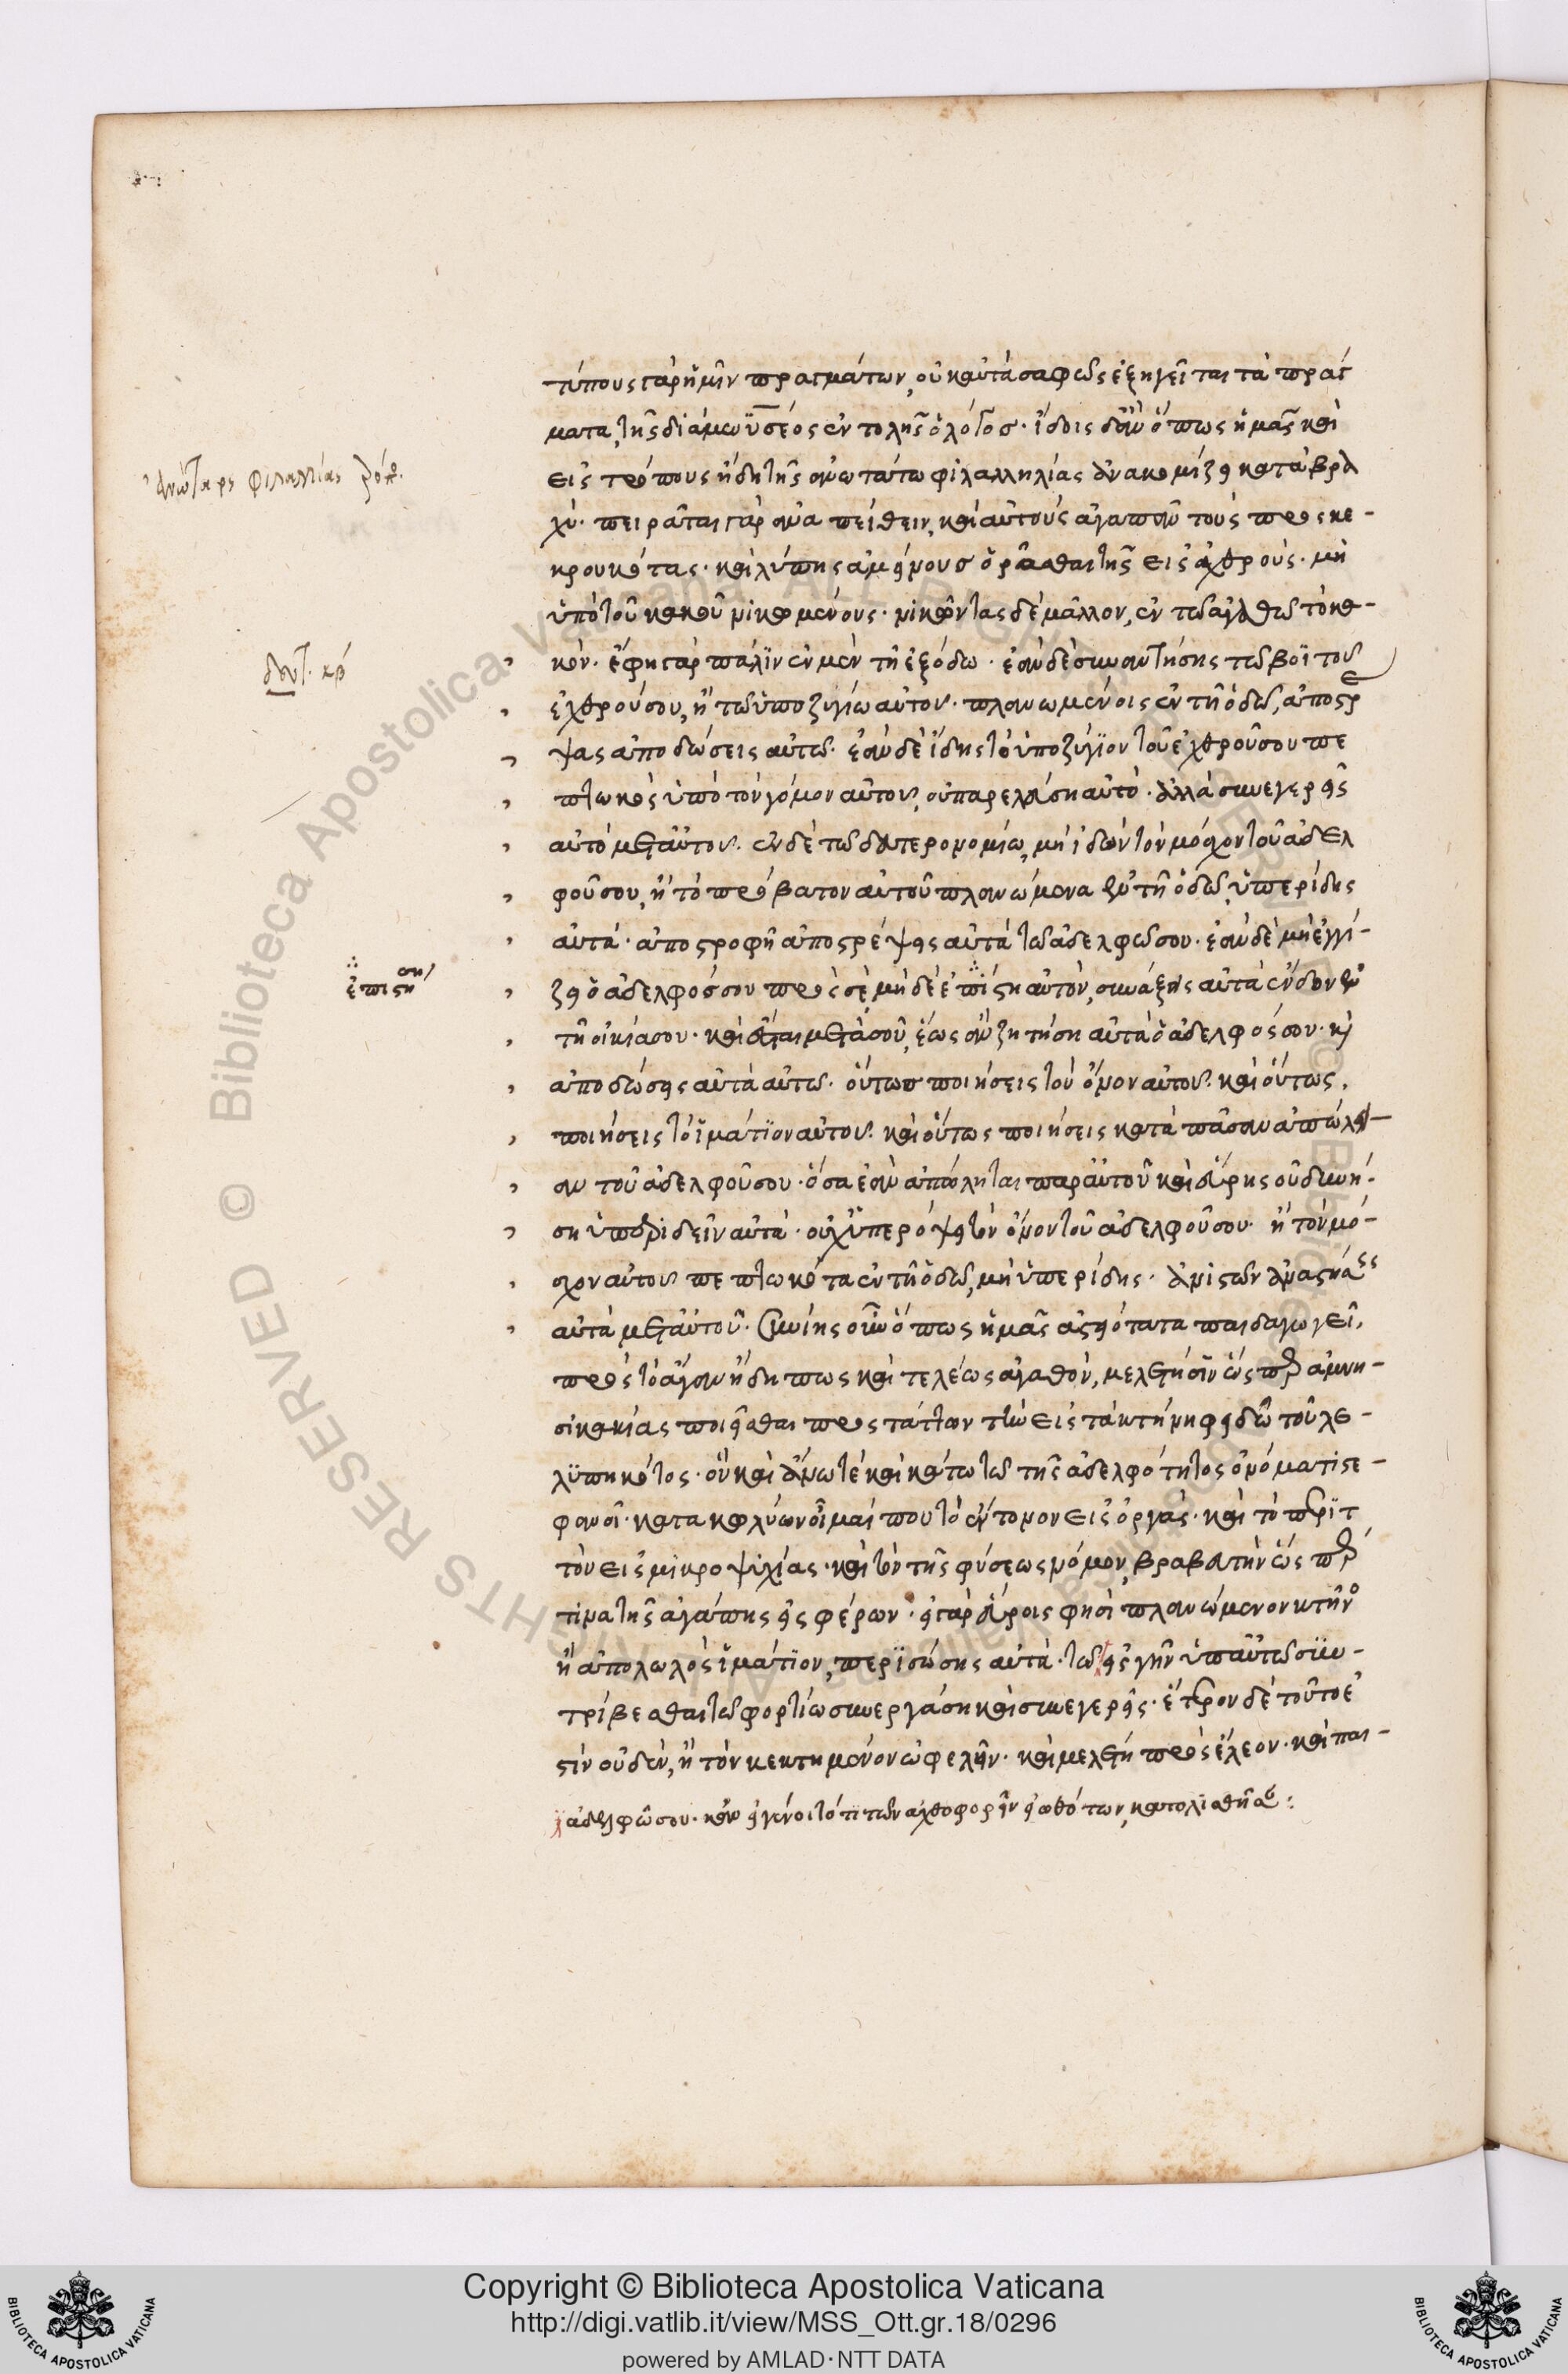 τύπους γὰρ ἡμῖν πραγμάτων, οὐκ αὐτὰ σαφῶς ἐξηγεῖται τὰ πράγ
ματα, τῆς διὰ μωϋσέος ἐντολῆς ὁ λόγος. ἴδοις δ' ἂν ὅπως ἡμᾶς καὶ
εἰς τρόπους ἤδη τῆς ἀνωτάτω φιλαλληλίας ἀνακομίζει κατὰ βρα
χύ. πειρᾶται γὰρ ἀναπείθειν, καὶ αὐτοὺς ἀγαπᾶν τοὺς προσκε-
κρουκότας. καὶ λύπης ἀμείνους ὁρᾶσθαι τῆς εἰς ἐχθρούς. μὴ
ὑπὸ τοῦ κακοῦ νικωμένους. νικῶντας δὲ μᾶλλον, ἐν τῷ ἀγαθῷ τὸ κα-
κόν. ἔφη γὰρ πάλιν ἐν μὲν τῇ ἐξόδω. ἐὰν δὲ συναντήσης τῶ βοῒ τοῦ
ἐχθροῦ σου, ἢ τῶ ὑποζυγίω αὐτοῦ. πλανωμένοις ἐν τῇ ὁδῶ, ἀποστρέ
ψας ἀποδώσεις αὐτῶ. ἐὰν δὲ ἴδης τὸ ὑποζύγιον τοῦ ἐχθροῦ σου πε
πτωκὸς ὑπὸ τὸν γόμον αὐτοῦ, οὐ παρελεύση αὐτό. ἀλλὰ συνεγερεῖς
αὐτὸ μετ' αὐτοῦ. ἐν δὲ τῶ δευτερονομίω, μὴ ἰδὼν τὸν μόσχον τοῦ ἀδελ
φοῦ σου, ἢ τὸ πρόβατον αὐτοῦ πλανώμενα ἐν τῇ ὁδῶ, ὑπερίδης
αὐτά. ἀποστροφῇ ἀποστρέψεις αὐτὰ τῶ ἀδελφῶ σου. ἐὰν δὲ μὴ ἐγγί-
ζει ὁ ἀδελφός σου πρὸς σὲ, μὴ δὲ ἐπίστη αὐτὸν, συνάξεις αὐτὰ ἔνδον ἐν
τῇ οἰκία σου. καὶ ἔσται μετὰ σοῦ, ἕως ἂν ζητήση αὐτὰ ὁ ἀδελφός σου. κὶ
ἀποδώσεις αὐτὰ αὐτῶ. οὕτως ποιήσεις τὸν ὄνον αὐτοῦ. καὶ οὕτως,
ποιήσεις τὸ ἱμάτιον αὐτοῦ. καὶ οὕτως ποιήσεις κατὰ πᾶσαν ἀπώλει-
αν τοῦ ἀδελφοῦ σου. ὅσα ἐὰν ἀπόληται παρ' αὐτοῦ καὶ εὕρης οὐ δυνή-
ση ὑπεριδεῖν αὐτά. οὐχ ὑπερόψει τὸν ὄνον τοῦ ἀδελφοῦ σου. ἢ τὸν μό-
σχον αὐτοῦ πεπτωκότα ἐν τῇ ὁδῶ, μὴ ὑπερίδης. ἀνιστῶν ἀναστήσεις
αὐτὰ μετ' αὐτοῦ. συνίης οὖν ὅπως ἡμᾶς ἀστειότατα παιδαγωγεῖ,
πρὸς τὸ ἄγαν ἤδη πως καὶ τελέως ἀγαθὸν, μελέτησιν ὥσπερ ἀμνη-
σικακίας ποιεῖσθαι προστάττων τὴν εἰς τὰ κτήνη φειδῶ τοῦ λε-
λυπηκότος. ὃν καὶ ἄνω τὲ καὶ κάτω τῶ τῆς ἀδελφότητος ὀνόματι στε-
φανοῖ. κατακωλύων οἶμαί που τὸ ἕτοιμον εἰς ὀργάς. καὶ τὸ περιτ
τὸν εἰς μικροψυχίας. καὶ τὸν τῆς φύσεως νόμον, βραβευτὴν ὥσπερ
τινα τῆς ἀγάπης εἰσφέρων. εἰ γὰρ εὕροις φησὶ πλανώμενον κτῆνος
ἢ ἀπολωλὸς ἱμάτιον, περισώσης αὐτά. τῶ εἰς γῆν ὑπ' αὐτῶ συν-
τρίβεσθαι τῶ φορτίω συνεργάση καὶ συνεγερεῖς. ἕτερον δὲ τοῦτο ἐ
στὶν οὐδὲν, ἢ τὸν κεκτημένον ὠφελεῖν. καὶ μελέτη πρὸς ἔλεον. καὶ παι-
ἀδελφῶ σου. κἂν εἰ γένοιτό τι τῶν ἀχθοφορεῖν εἰωθότων, κατολισθῆσαν:
δευτ. κβ
ἐπιστη